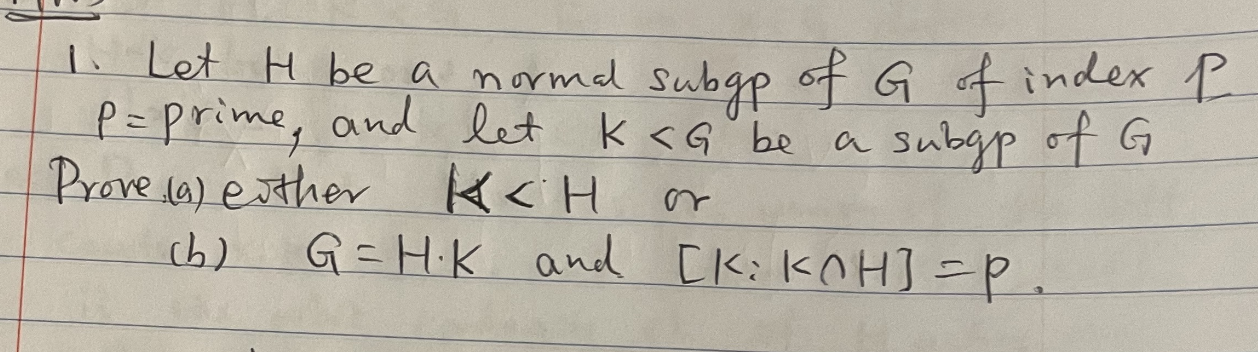 1. Let H be a normal subgp of G of index P
p = prime, and let K < G be a subgp of G
Prove (a) either K < H or
(b) G = H·K and [K: K∩H] = p.